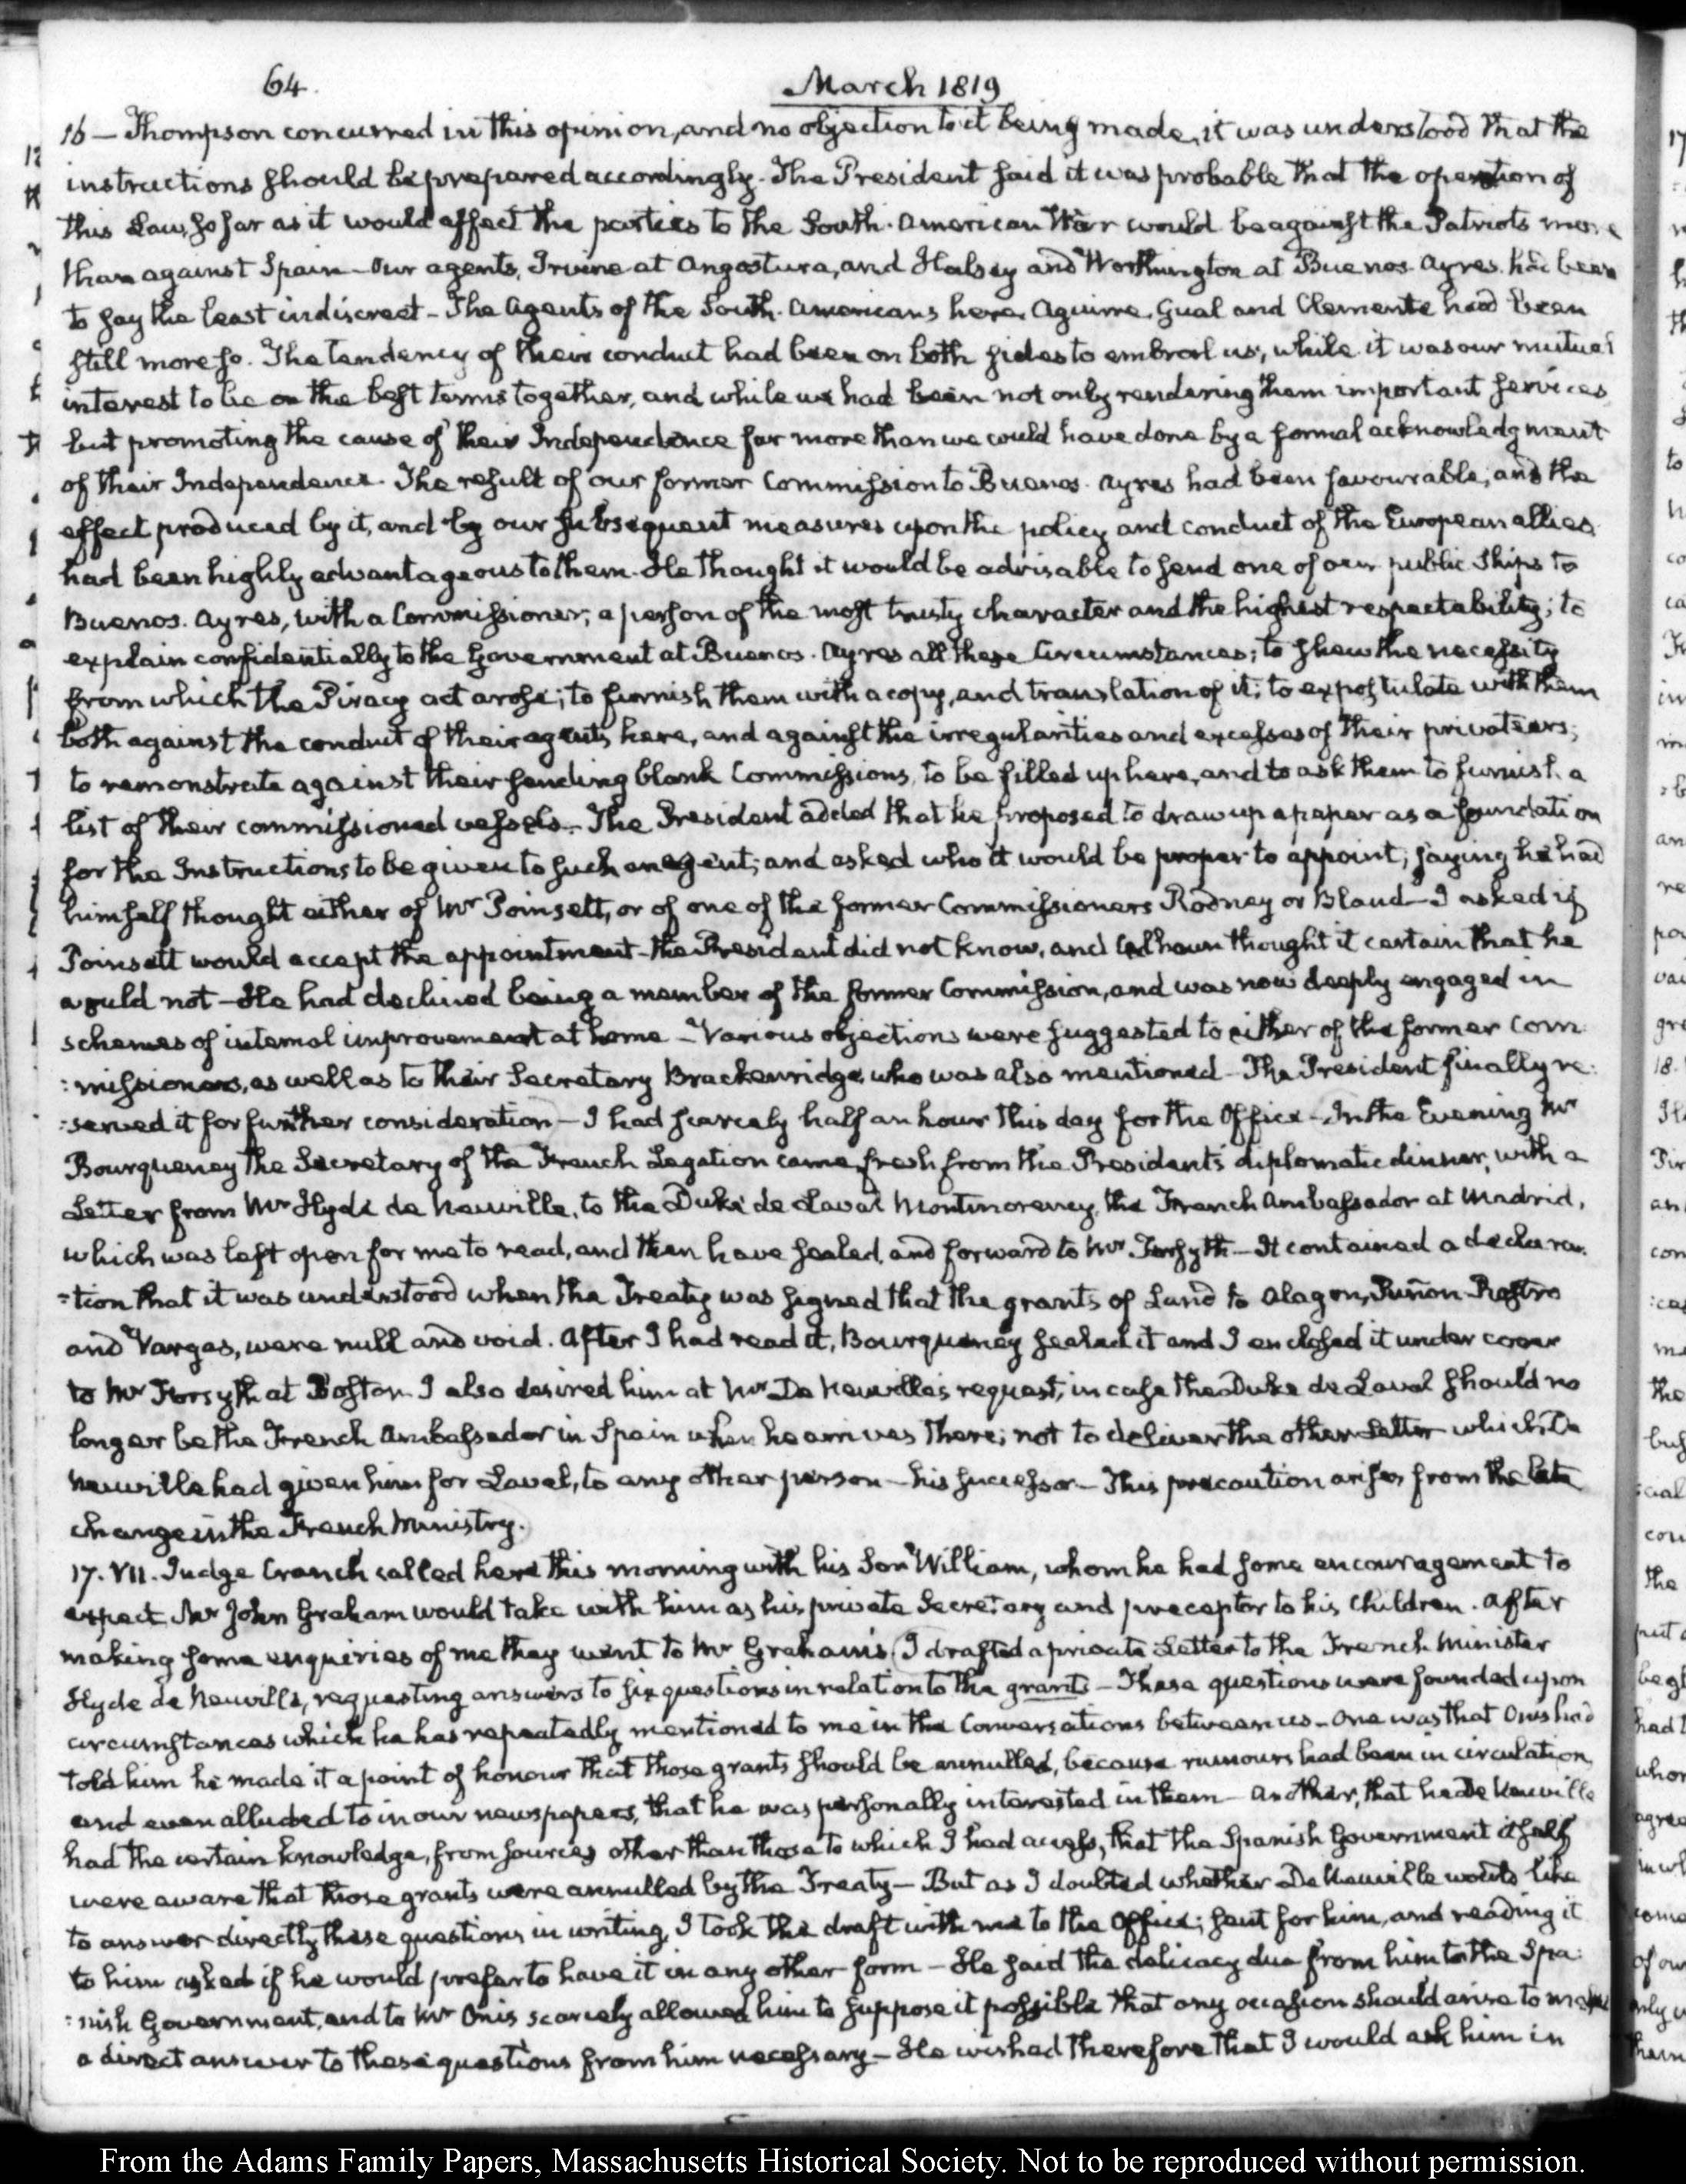 64.
March 1819
16 — Thompson concurred in this opinion, and no objection to it being made, it was understood that the
instructions should be prepared accordingly. The President said it was probable that the operation of
this Law, so far as it would affect the parties to the South-American War would be against the Patriots more
than against Spain — Our agents, Irvine at Angostura, and Halsey and Worthington at Buenos-Ayres had been
to say the least indiscreet — The Agents of the South-Americans here, Aguirre, Gual and Clemente had been
still more so. The tendency of their conduct had been on both sides to embroil us, while it was our mutual
interest to be on the best terms together, and while we had been not only rendering them important services,
but promoting the cause of their Independence far more than we could have done by a formal acknowledgment
of their Independence. The result of our former Commission to Buenos-Ayres had been favourable; and the
effect produced by it, and by our subsequent measures upon the policy and conduct of the European allies
had been highly advantageous to them. He thought it would be advisable to send one of our public Ships to
Buenos-Ayres, with a Commissioner; a person of the most trusty character and the highest respectability; to
explain confidentially to the Government at Buenos-Ayres all these Circumstances; to shew the necessity
from which the Piracy act arose; to furnish them with a copy, and translation of it; to expostulate with them
both against the conduct of their agents here, and against the irregularities and excesses of their privateers;
to remonstrate against their sending blank Commissions, to be filled up here, and to ask them to furnish a
list of their commissioned vessels — The President added that he proposed to draw up a paper as a foundation
for the Instructions to be given to such an agent; and asked who it would be proper to appoint; saying he had
himself thought either of Mr Poinsett, or of one of the former Commissioners Rodney or Bland — I asked if
Poinsett would accept the appointment — the President did not know, and Calhoun thought it certain that he
would not — He had declined being a member of the former Commission, and was now deeply engaged in
schemes of internal improvement at home — Various objections were suggested to either of the former Com
:missioners, as well as to their Secretary Brackenridge, who was also mentioned — The President finally re:
:served it for further consideration — I had scarcely half an hour this day for the Office — In the Evening Mr
Bourqueney the Secretary of the French Legation came, fresh from the President's diplomatic dinner, with a
Letter from Mr Hyde de Neuville, to the Duke de Laval Montmorency, the French Ambassador at Madrid,
which was left open for me to read, and then have sealed, and forward to Mr Forsyth — It contained a declara:
:tion that it was understood when the Treaty was signed that the grants of Land to Alagon, Puñon-Rostro
and Vargas, were null and void. After I had read it, Bourqueney sealed it and I enclosed it under cover
to Mr Forsyth at Boston. I also desired him at Mr De Neuville's request, in case the Duke de Laval should no
longer be the French Ambassador in Spain when he arrives there; not to deliver the other Letter which De
Neuville had given him for Laval, to any other person — his successor — This precaution arises from the late
change in the French Ministry.
17. VII. Judge Cranch called here this morning with his Son William, whom he had some encouragement to
expect Mr John Graham would take with him as his private Secretary and preceptor to his Children. After
making some enquiries of me they went to Mr Graham's (I drafted a private Letter to the French Minister
Hyde de Neuville, requesting answers to six questions in relation to the grants — These questions were founded upon
circumstances which he has repeatedly mentioned to me in the Conversations between us — One was that Onis had
told him he made it a point of honour that those grants should be annulled, because rumours had been in circulation,
and even alluded to in our newspapers, that he was personally interested in them — Another, that he De Neuville
had the certain knowledge, from sources other than those to which I had access, that the Spanish Government itself
were aware that those grants were annulled by the Treaty — But as I doubted whether De Neuville would like
to answer directly these questions in writing, I took the draft with me to the Office; sent for him, and reading it
to him asked if he would prefer to have it in any other form — He said the delicacy due from him to the Spa:
:nish Government, and to Mr Onis scarcely allowed him to suppose it possible that any occasion should arise to make
a direct answer to these questions from him necessary — He wished therefore that I would ask him in
From the Adams Family Papers, Massachusetts Historical Society. Not to be reproduced without permission.